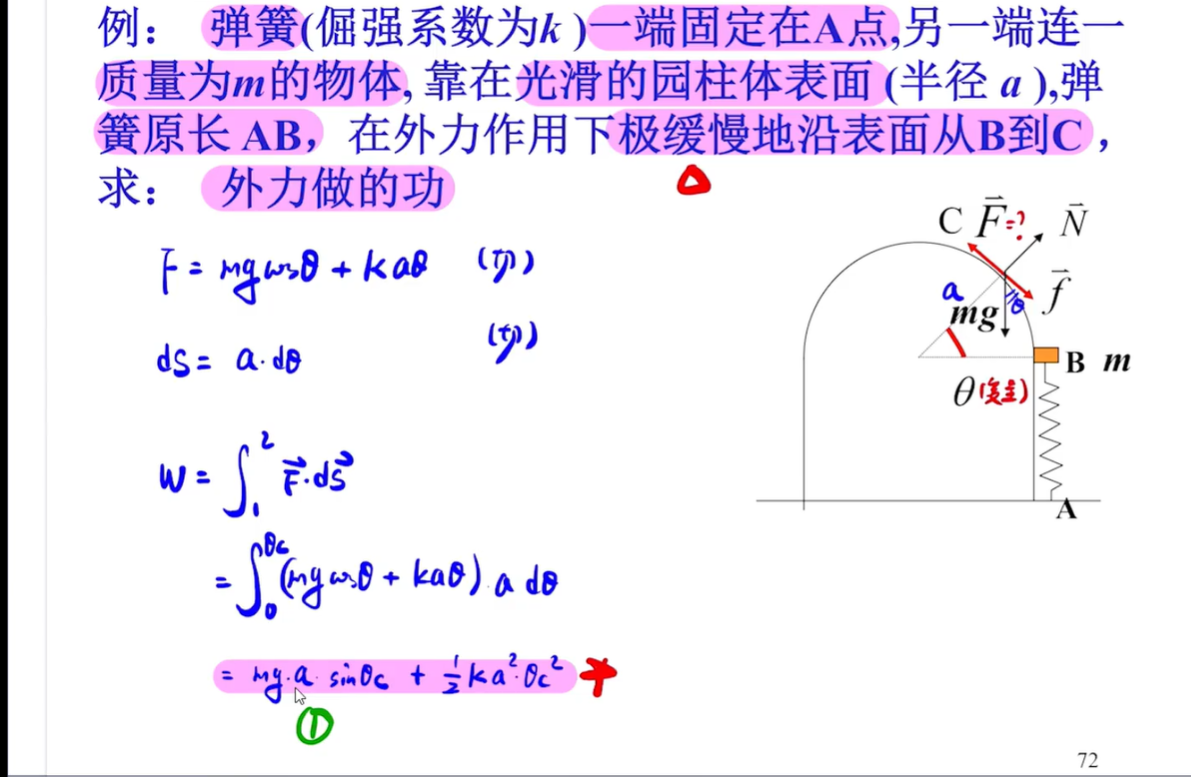 例： 弹簧(倔强系数为k )一端固定在A点,另一端连一
质量为m的物体, 靠在光滑的园柱体表面 (半径 a ),弹
簧原长 AB， 在外力作用下极缓慢地沿表面从B到C，
求： 外力做的功
F = mg cosθ + kaθ (切)
dS = a·dθ (切)
W = ∫₁² F⃗·dS⃗
= ∫₀^θc (mg cosθ + kaθ)·a dθ
= mg·a·sinθc + ½ka²·θc²
①
C F⃗=? N⃗
a θ f⃗
mg
B m
θ(变量)
A
72